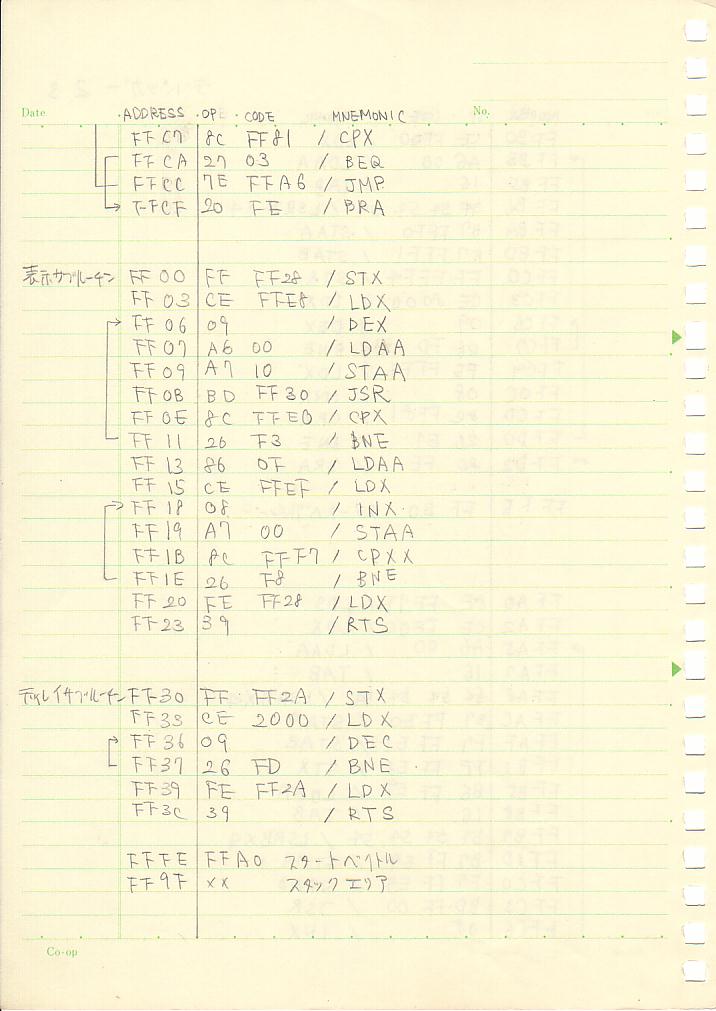 Date No.
ADDRESS OP CODE MNEMONIC
FFC7 8C FF81 / CPX
FFCA 27 03 / BEQ
FFCC 7E FFA6 / JMP
FFCF 20 FE / BRA
表示サブルーチン FF00 FF FF28 / STX
FF03 CE FFE8 / LDX
FF06 09 / DEX
FF07 A6 00 / LDAA
FF09 A7 10 / STAA
FF0B BD FF30 / JSR
FF0E 8C FFE0 / CPX
FF11 26 F3 / BNE
FF13 86 0F / LDAA
FF15 CE FFEF / LDX
FF18 08 / INX
FF19 A7 00 / STAA
FF1B 8C FFF7 / CPXX
FF1E 26 F8 / BNE
FF20 FE FF28 / LDX
FF23 39 / RTS
ディレイサブルーチン FF30 FF FF2A / STX
FF33 CE 2000 / LDX
FF36 09 / DEC
FF37 26 FD / BNE
FF39 FE FF2A / LDX
FF3C 39 / RTS
FFFE FFA0 スタートベクトル
FF9F ×× スタックエリア
Co-op